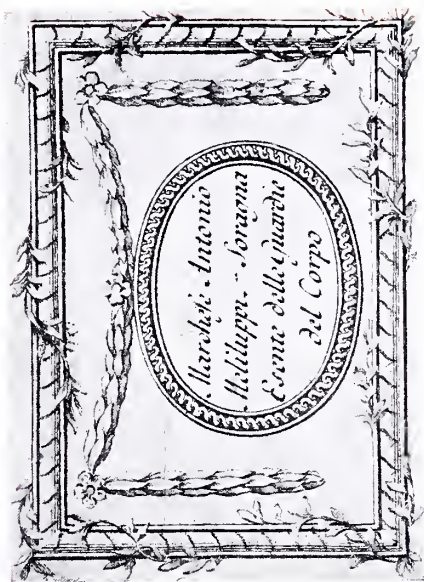 Marchese Antonio
Meliluppi - Soragna
Esente delle Guardie
del Corpo